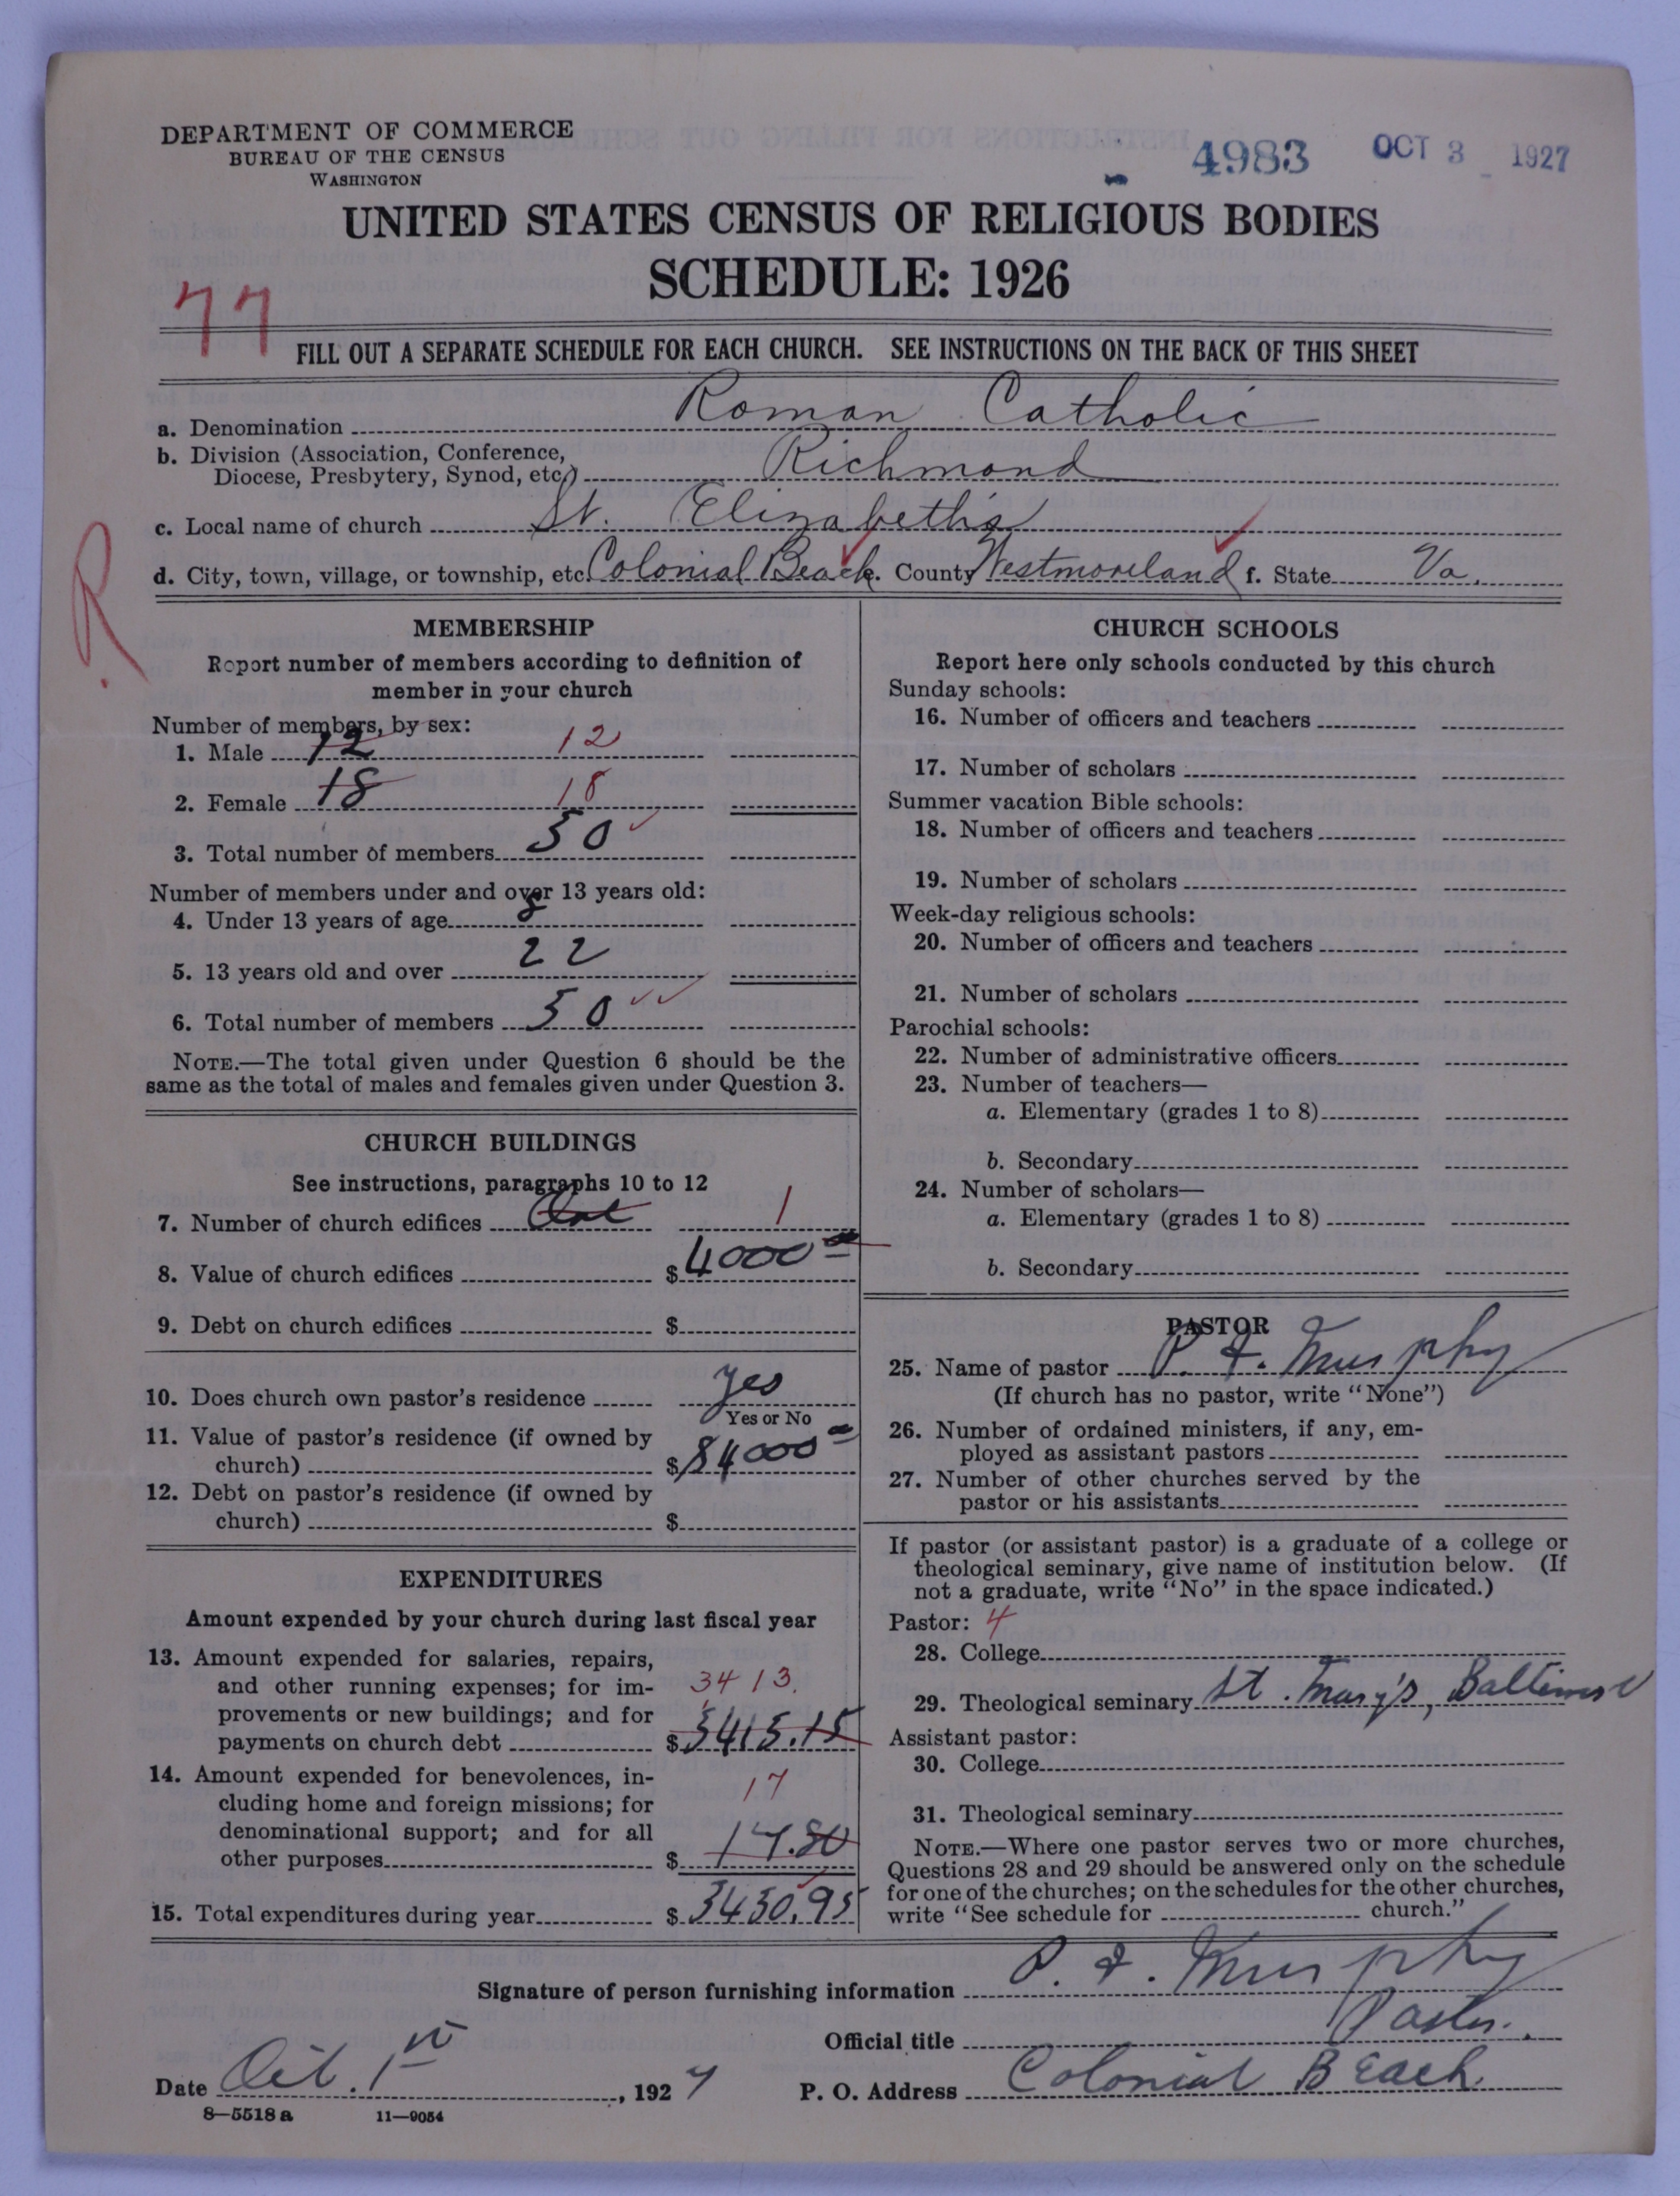 DEPARTMENT OF COMMERCE
BUREAU OF THE CENSUS
WASHINGTON
4983 OCT 3 1927
UNITED STATES CENSUS OF RELIGIOUS BODIES
SCHEDULE: 1926
77
FILL OUT A SEPARATE SCHEDULE FOR EACH CHURCH. SEE INSTRUCTIONS ON THE BACK OF THIS SHEET
a. Denomination Roman Catholic
b. Division (Association, Conference,
Diocese, Presbytery, Synod, etc.) Richmond
c. Local name of church St. Elizabeth's
d. City, town, village, or township, etc. Colonial Beach e. County Westmoreland f. State Va.
R.
MEMBERSHIP
Report number of members according to definition of
member in your church
Number of members, by sex:
1. Male 12 12
2. Female 18 18
3. Total number of members 30
Number of members under and over 13 years old:
4. Under 13 years of age 8
5. 13 years old and over 22
6. Total number of members 30
NOTE.—The total given under Question 6 should be the
same as the total of males and females given under Question 3.
CHURCH BUILDINGS
See instructions, paragraphs 10 to 12
7. Number of church edifices One 1
8. Value of church edifices $ 4000 00
9. Debt on church edifices $
10. Does church own pastor's residence yes
Yes or No
11. Value of pastor's residence (if owned by
church) $ $4000 00
12. Debt on pastor's residence (if owned by
church) $
EXPENDITURES
Amount expended by your church during last fiscal year
13. Amount expended for salaries, repairs,
and other running expenses; for im- 3413.
provements or new buildings; and for
payments on church debt $ 3413.15
14. Amount expended for benevolences, in- 17
cluding home and foreign missions; for
denominational support; and for all
other purposes $ 17.80
15. Total expenditures during year $ 3430.95
CHURCH SCHOOLS
Report here only schools conducted by this church
Sunday schools:
16. Number of officers and teachers
17. Number of scholars
Summer vacation Bible schools:
18. Number of officers and teachers
19. Number of scholars
Week-day religious schools:
20. Number of officers and teachers
21. Number of scholars
Parochial schools:
22. Number of administrative officers
23. Number of teachers—
a. Elementary (grades 1 to 8)
b. Secondary
24. Number of scholars—
a. Elementary (grades 1 to 8)
b. Secondary
PASTOR
25. Name of pastor P. F. Murphy
(If church has no pastor, write "None")
26. Number of ordained ministers, if any, em-
ployed as assistant pastors
27. Number of other churches served by the
pastor or his assistants
If pastor (or assistant pastor) is a graduate of a college or
theological seminary, give name of institution below. (If
not a graduate, write "No" in the space indicated.)
Pastor: 4
28. College
29. Theological seminary St. Mary's, Baltimore
Assistant pastor:
30. College
31. Theological seminary
NOTE.—Where one pastor serves two or more churches,
Questions 28 and 29 should be answered only on the schedule
for one of the churches; on the schedules for the other churches,
write "See schedule for church."
Signature of person furnishing information P. F. Murphy
Official title Pastor.
Date Oct. 1st, 1927 P. O. Address Colonial Beach
8—5518 a 11—9054